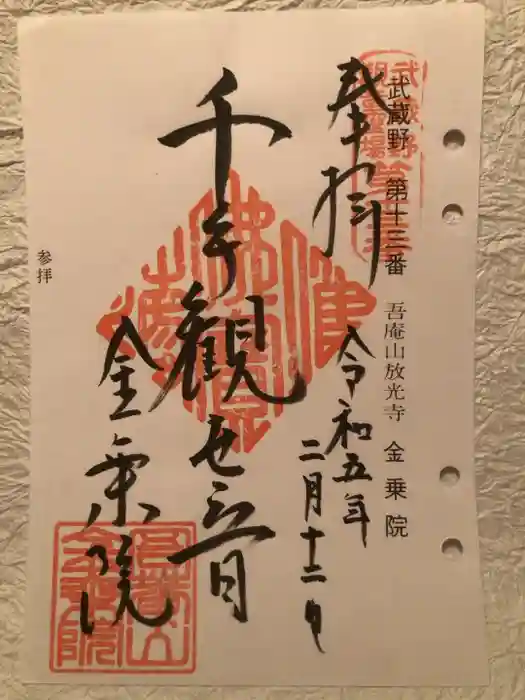 武蔵野 第十三番 吾庵山放光寺 金乗院
奉拝 令和五年
二月十二日
千手観世音
金乗院
参拝
武蔵野
観音霊場